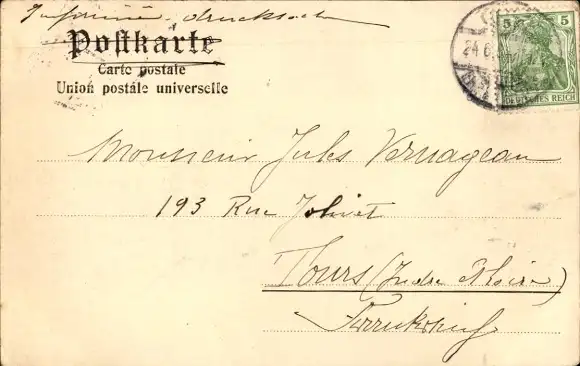 Imprimé - Drucksache
Postkarte
Carte postale
Union postale universelle
5 5
DEUTSCHES REICH
24 6
Monsieur Jules Vernageau
193 Rue Jolivet
Tours (Indre & Loire)
Frankreich